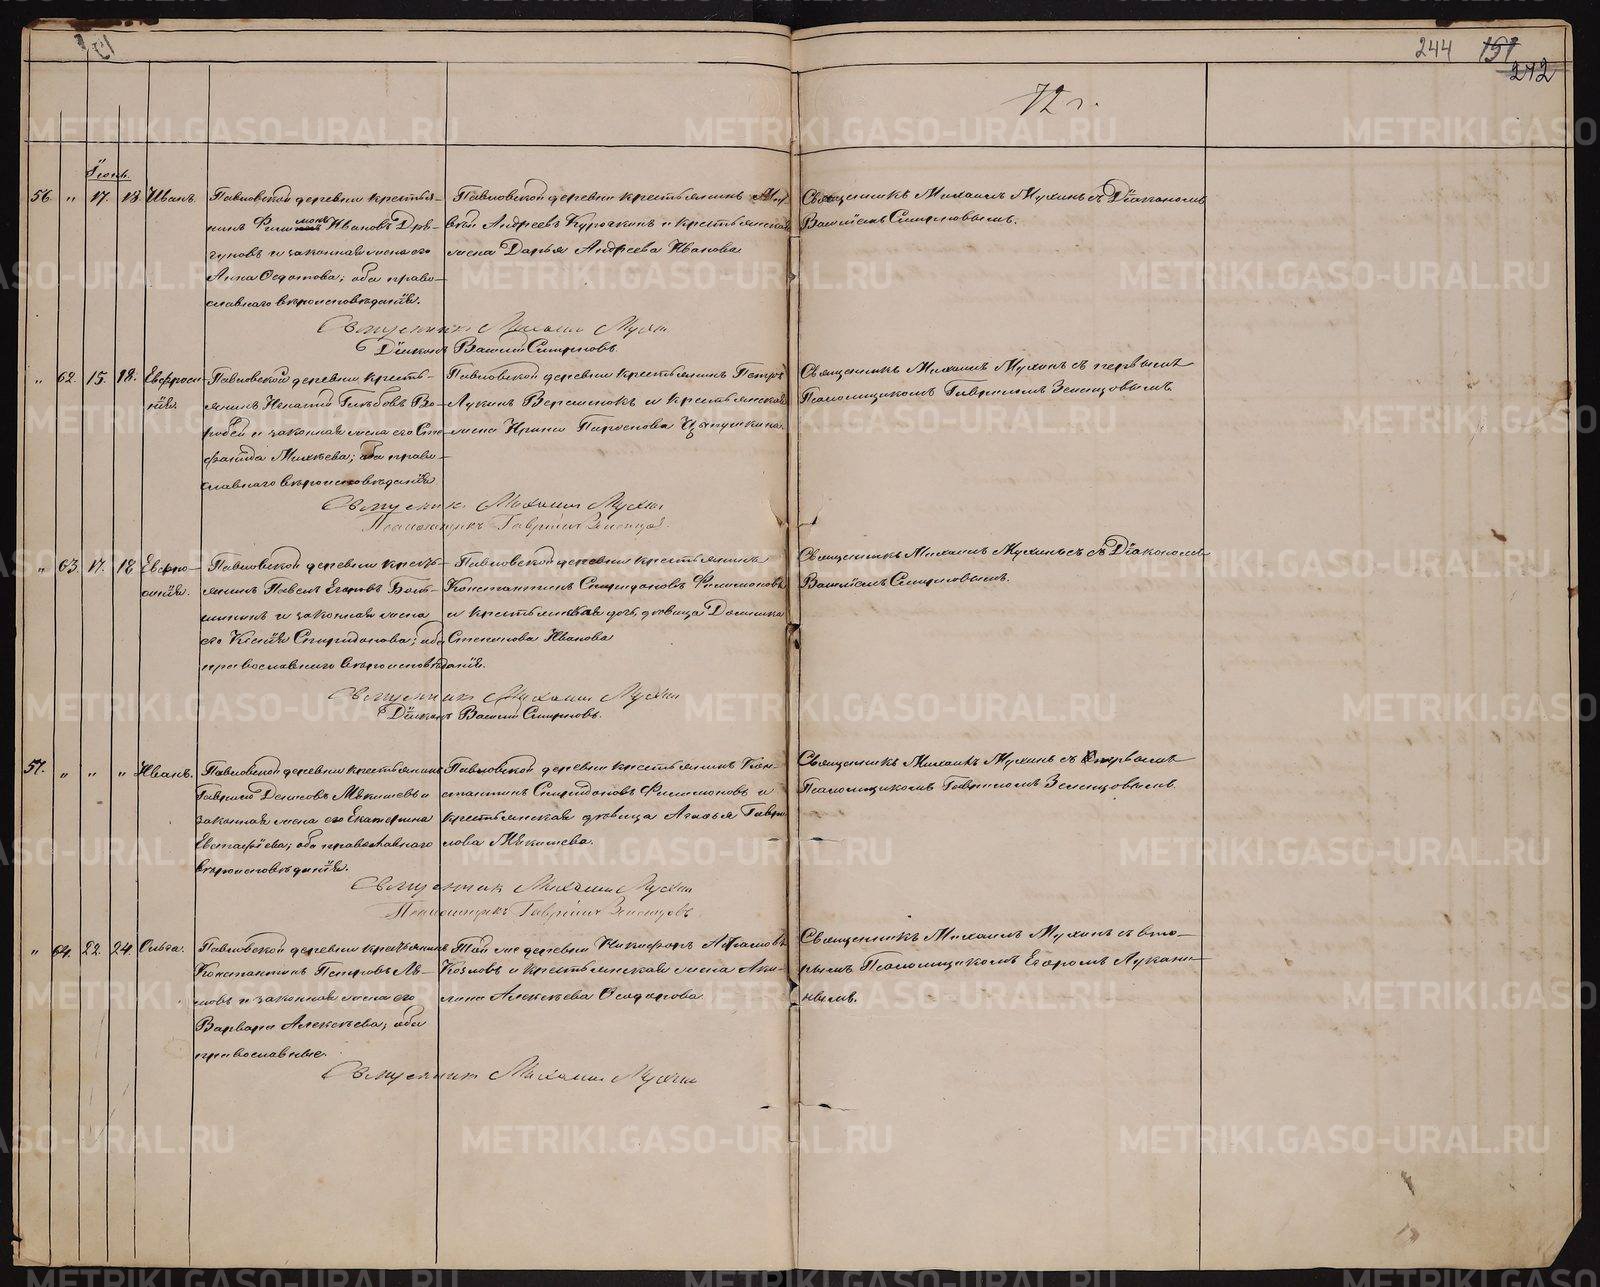 244 151
242
72 г.
Іюнь.
56. " 17. 18. Иванъ.
Павловской деревни крестья-
нинъ Филимонъ Ивановъ Дря-
гуновъ и законная жена его
Анна Федотова; оба право-
славнаго вѣроисповѣданія.
Павловской деревни крестьянинъ
Андреевъ Курочкинъ и крестьянская
жена Дарья Андреева Иванова
Священникъ Михаилъ Мухинъ съ Діакономъ
Василіемъ Смирновымъ.
Священникъ Михаилъ Мухин
Діаконъ Василій Смирновъ.
" 62. 15. 18. Евфроси-
нія.
Павловской деревни кресть-
янинъ Игнатій Глѣбовъ Во-
робей и законная жена его Сте-
фанида Михѣева; оба право-
славнаго вѣроисповѣданія
Павловской деревни крестьянинъ Петръ
Лукинъ и крестьянская
жена Ирина
Священникъ Михаилъ Мухинъ съ первымъ
Псаломщикомъ Гавриломъ Зеленцовымъ.
Священник Михаилъ Мухин
Псаломщикъ Гавріилъ Зеленцов.
" 63. 17. 18. Евфро-
синія.
Павловской деревни кресть-
янинъ Павелъ Егоровъ Боль-
шининъ и законная жена
его Ксенія Спиридонова; оба
православнаго вѣроисповѣданія.
Павловской деревни крестьянинъ
Константинъ Спиридоновъ Филимоновъ
и крестьянская дочь, дѣвица Домника
Степанова Иванова
Священникъ Михаилъ Мухинъ съ Діакономъ
Василіемъ Смирновымъ.
Священник Михаилъ Мухин
Діаконъ Василій Смирновъ.
57. " " " Иванъ.
Павловской деревни крестьянинъ
Гаврило Денисовъ Мѣкишевъ и
законная жена его Екатерина
Евстафіева; оба православнаго
вѣроисповѣданія.
Павловской деревни крестьянинъ Кон-
стантинъ Спиридоновъ Филимоновъ и
крестьянская дѣвица Агафья Гаври-
лова Мѣкишева.
Священникъ Михаилъ Мухинъ съ первымъ
Псаломщикомъ Гавриломъ Зеленцовымъ.
Священник Михаилъ Мухин
Псаломщикъ Гавріилъ Зеленцовъ.
" 64. 22. 24. Ольга.
Павловской деревни крестьянинъ
Константинъ Петровъ Ль-
вовъ и законная жена его
Варвара Алексѣева; оба
православные.
Той же деревни Никифоръ Афанасовъ
Козловъ и крестьянская жена Аку-
лина Алексѣева Федорова
Священникъ Михаилъ Мухинъ съ вто-
рымъ Псаломщикомъ Егоромъ Лукани-
нымъ.
Священник Михаилъ Мухин